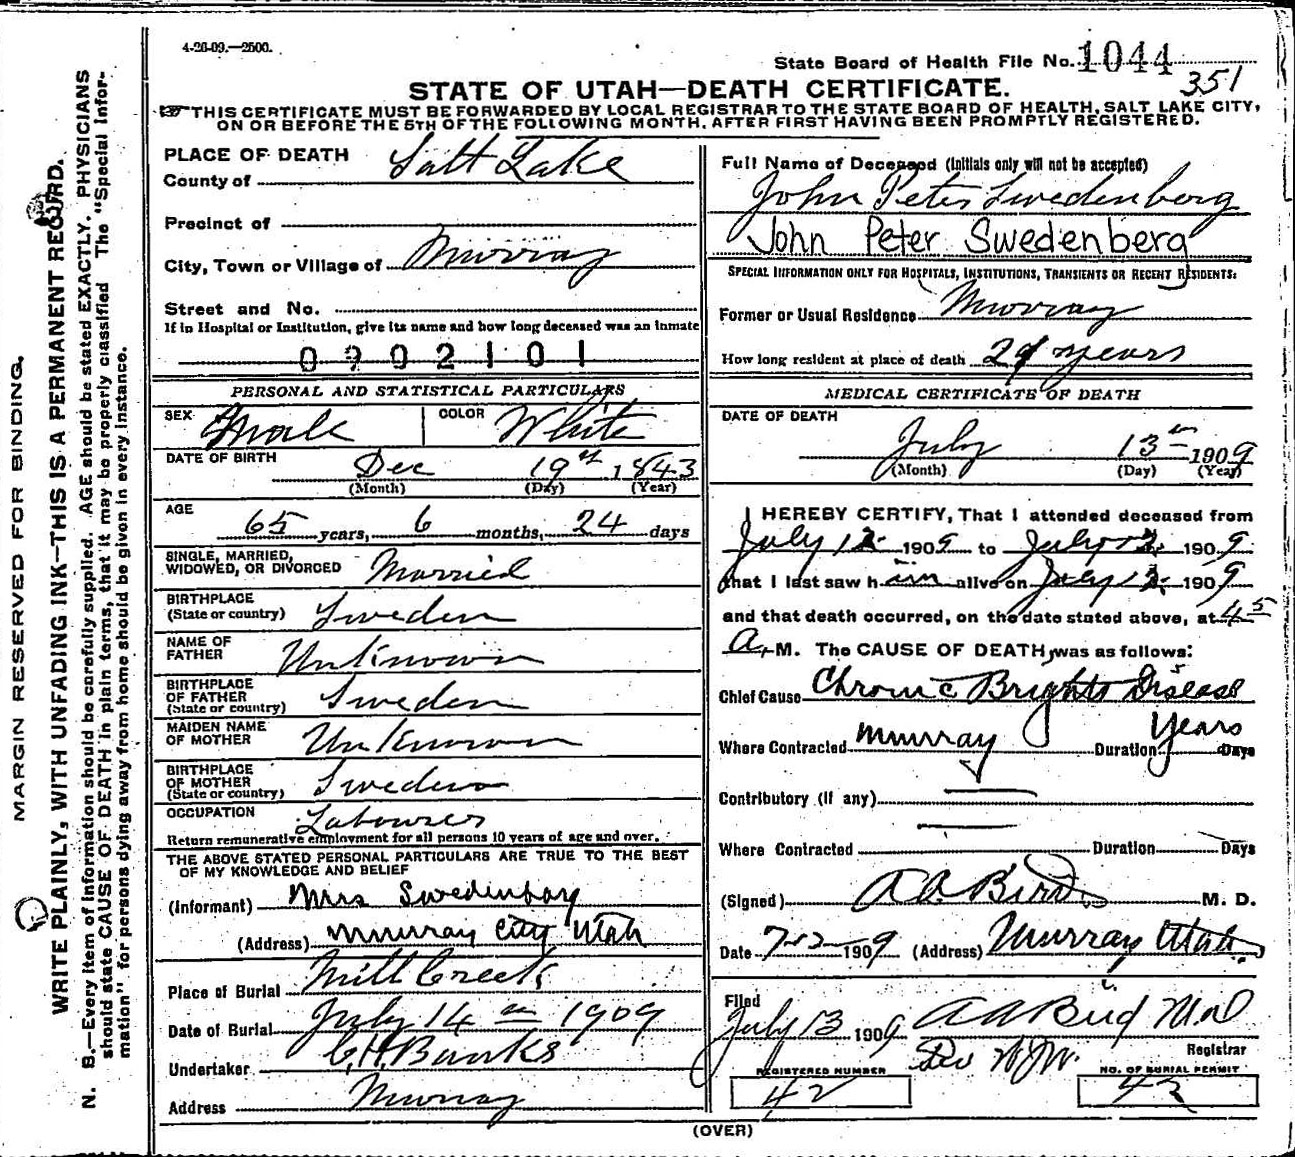 4-26-09.—2500.
State Board of Health File No. 1044
351
STATE OF UTAH—DEATH CERTIFICATE.
THIS CERTIFICATE MUST BE FORWARDED BY LOCAL REGISTRAR TO THE STATE BOARD OF HEALTH, SALT LAKE CITY,
ON OR BEFORE THE 5TH OF THE FOLLOWING MONTH, AFTER FIRST HAVING BEEN PROMPTLY REGISTERED.
MARGIN RESERVED FOR BINDING.
WRITE PLAINLY, WITH UNFADING INK—THIS IS A PERMANENT RECORD.
N. B.—Every item of information should be carefully supplied. AGE should be stated EXACTLY. PHYSICIANS
should state CAUSE OF DEATH in plain terms, that it may be properly classified The "Special Infor-
mation" for persons dying away from home should be given in every instance.
PLACE OF DEATH
County of Salt Lake
Precinct of
City, Town or Village of Murray
Street and No.
If in Hospital or Institution, give its name and how long deceased was an inmate
0902101
PERSONAL AND STATISTICAL PARTICULARS
SEX Male COLOR White
DATE OF BIRTH Dec 19 1843
(Month) (Day) (Year)
AGE
65 years, 6 months, 24 days
SINGLE, MARRIED,
WIDOWED, OR DIVORCED Married
BIRTHPLACE
(State or country) Sweden
NAME OF
FATHER Unknown
BIRTHPLACE
OF FATHER
(State or country) Sweden
MAIDEN NAME
OF MOTHER Unknown
BIRTHPLACE
OF MOTHER
(State or country) Sweden
OCCUPATION Labourer
Return remunerative employment for all persons 10 years of age and over.
THE ABOVE STATED PERSONAL PARTICULARS ARE TRUE TO THE BEST
OF MY KNOWLEDGE AND BELIEF
(Informant) Mrs Swedinborg
(Address) Murray City Utah
Place of Burial Mill Creek
Date of Burial July 14 1909
Undertaker
Address Murray
Full Name of Deceased (Initials only will not be accepted)
John Peter Swedenberg
John Peter Swedenberg
SPECIAL INFORMATION ONLY FOR HOSPITALS, INSTITUTIONS, TRANSIENTS OR RECENT RESIDENTS:
Former or Usual Residence Murray
How long resident at place of death years
MEDICAL CERTIFICATE OF DEATH
DATE OF DEATH
July 13 1909
(Month) (Day) (Year)
I HEREBY CERTIFY, That I attended deceased from
July 12 1909 to July 12 1909
that I last saw him alive on July 12 1909
and that death occurred, on the date stated above, at 4
A. M. The CAUSE OF DEATH was as follows:
Chief Cause Chronic Brights Disease
Where Contracted Murray Duration Years Days
Contributory (if any)
Where Contracted Duration Days
(Signed) A A Bird M. D.
Date 7-12-1909 (Address) Murray Utah
Filed
July 13 1909 A A Bird MD
Registrar
REGISTERED NUMBER
42
NO. OF BURIAL PERMIT
42
(OVER)